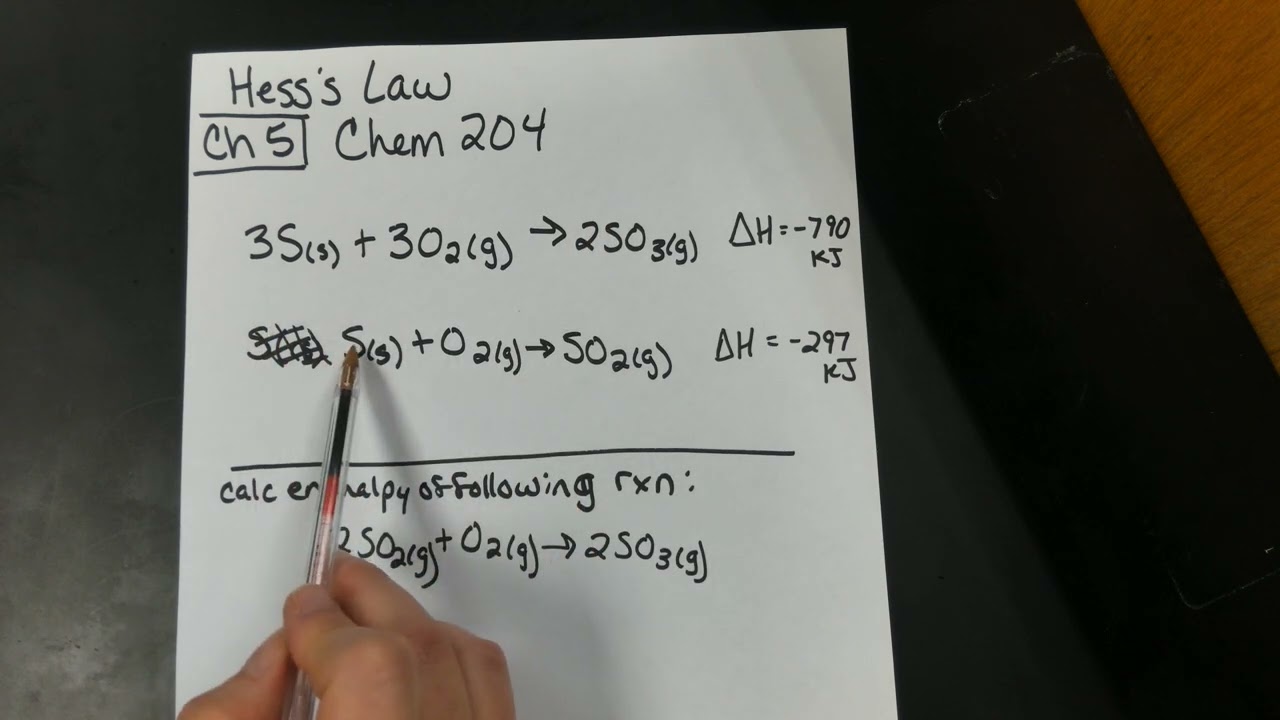 Hess's Law
Ch 5 Chem 204
3S(s) + 3O2(g) → 2SO3(g) ΔH = -790 KJ
S(s) + O2(g) → SO2(g) ΔH = -297 KJ
calc of following rxn:
2SO2(g) + O2(g) → 2SO3(g)